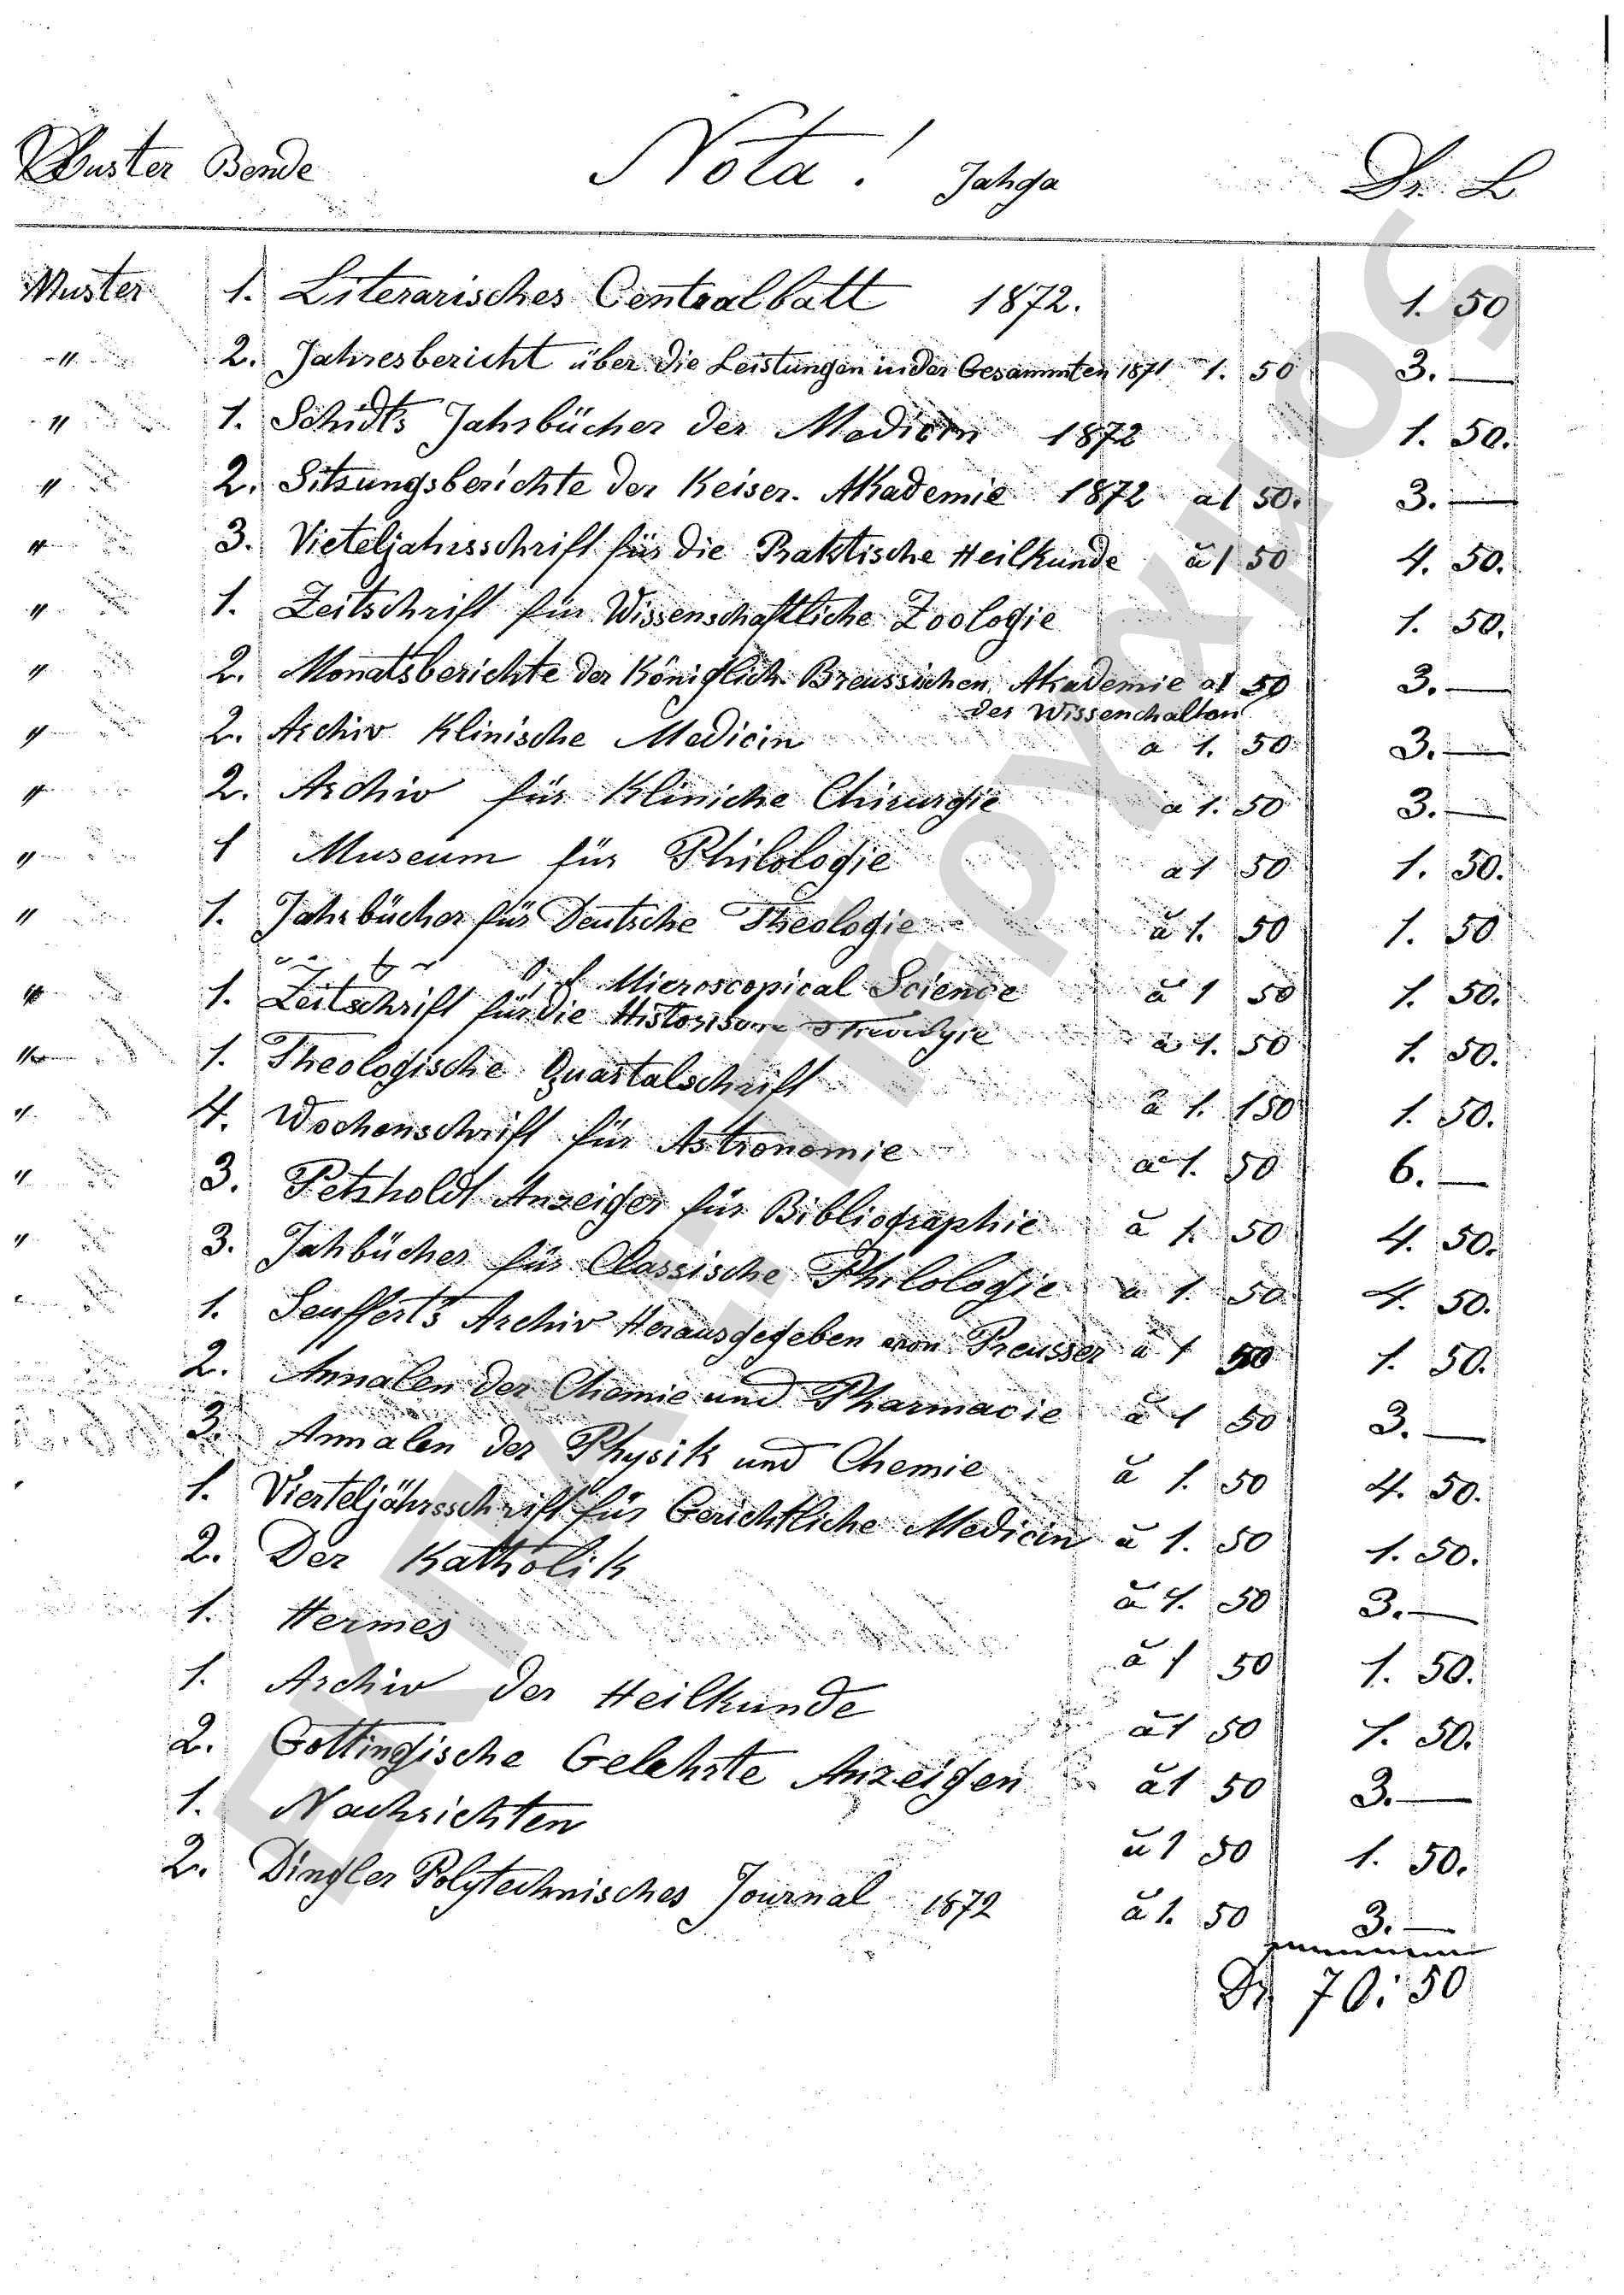 Muster Bende Nota! Jahga Dr. L
Muster 1. Literarisches Centralbatt 1872. 1. 50
" 2. Jahresbericht über die Leistungen in der Gesammten 1871 1. 50 3. —
" 1. Schidts Jahrbücher der Medicin 1872 1. 50.
" 2. Sitzungsberichte der Keiser. Akademie 1872 a 1 50. 3. —
" 3. Vieteljahrsschrift für die Praktische Heilkunde ã 1 50 4. 50.
" 1. Zeitschrift für Wissenschaftliche Zoologie 1. 50.
" 2. Monatsberichte der Königlich. Breussischen Akademie a 1 50 3. —
der Wissenchaften
" 2. Archiv Klinische Medicin a 1. 50 3. —
" 2. Archiv für Kliniche Chirurgie a 1. 50 3. —
" 1 Museum für Philologie a 1 50 1. 50.
" 1. Jahrbücher für Deutsche Theologie ã 1. 50 1. 50
Microscopical Science ã 1 50 1. 50.
" 1. Zeitschrift für die a 1. 50 1. 50.
" 1. Theologische Quartalschrift ã 1. 150 1. 50.
" 4. Wochenschrift für Astronomie a 1. 50 6. —
" 3. Petzholdt Anzeiger für Bibliographie ã 1. 50 4. 50.
" 3. Jahbücher für Classische Philologie a 1. 50 4. 50.
1. Seufferts Archiv Herausgegeben von Preusser ã 1 50 1. 50.
2. Annalen der Chemie und Pharmacie ã 1 50 3. —
3. Annalen der Physik und Chemie ã 1. 50 4. 50.
1. Vierteljährsschrift für Gerichtliche Medicin ã 1. 50 1. 50.
2. Der Katholik ã 1. 50 3. —
1. Hermes ã 1 50 1. 50.
1. Archiv der Heilkunde ã 1 50 1. 50.
2. Gottingische Gelehrte Anzeigen ã 1 50 3. —
1. Nachrichten ã 1 50 1. 50.
2. Dingler Polytechnisches Journal 1872 ã 1. 50 3. —
Dr 70: 50